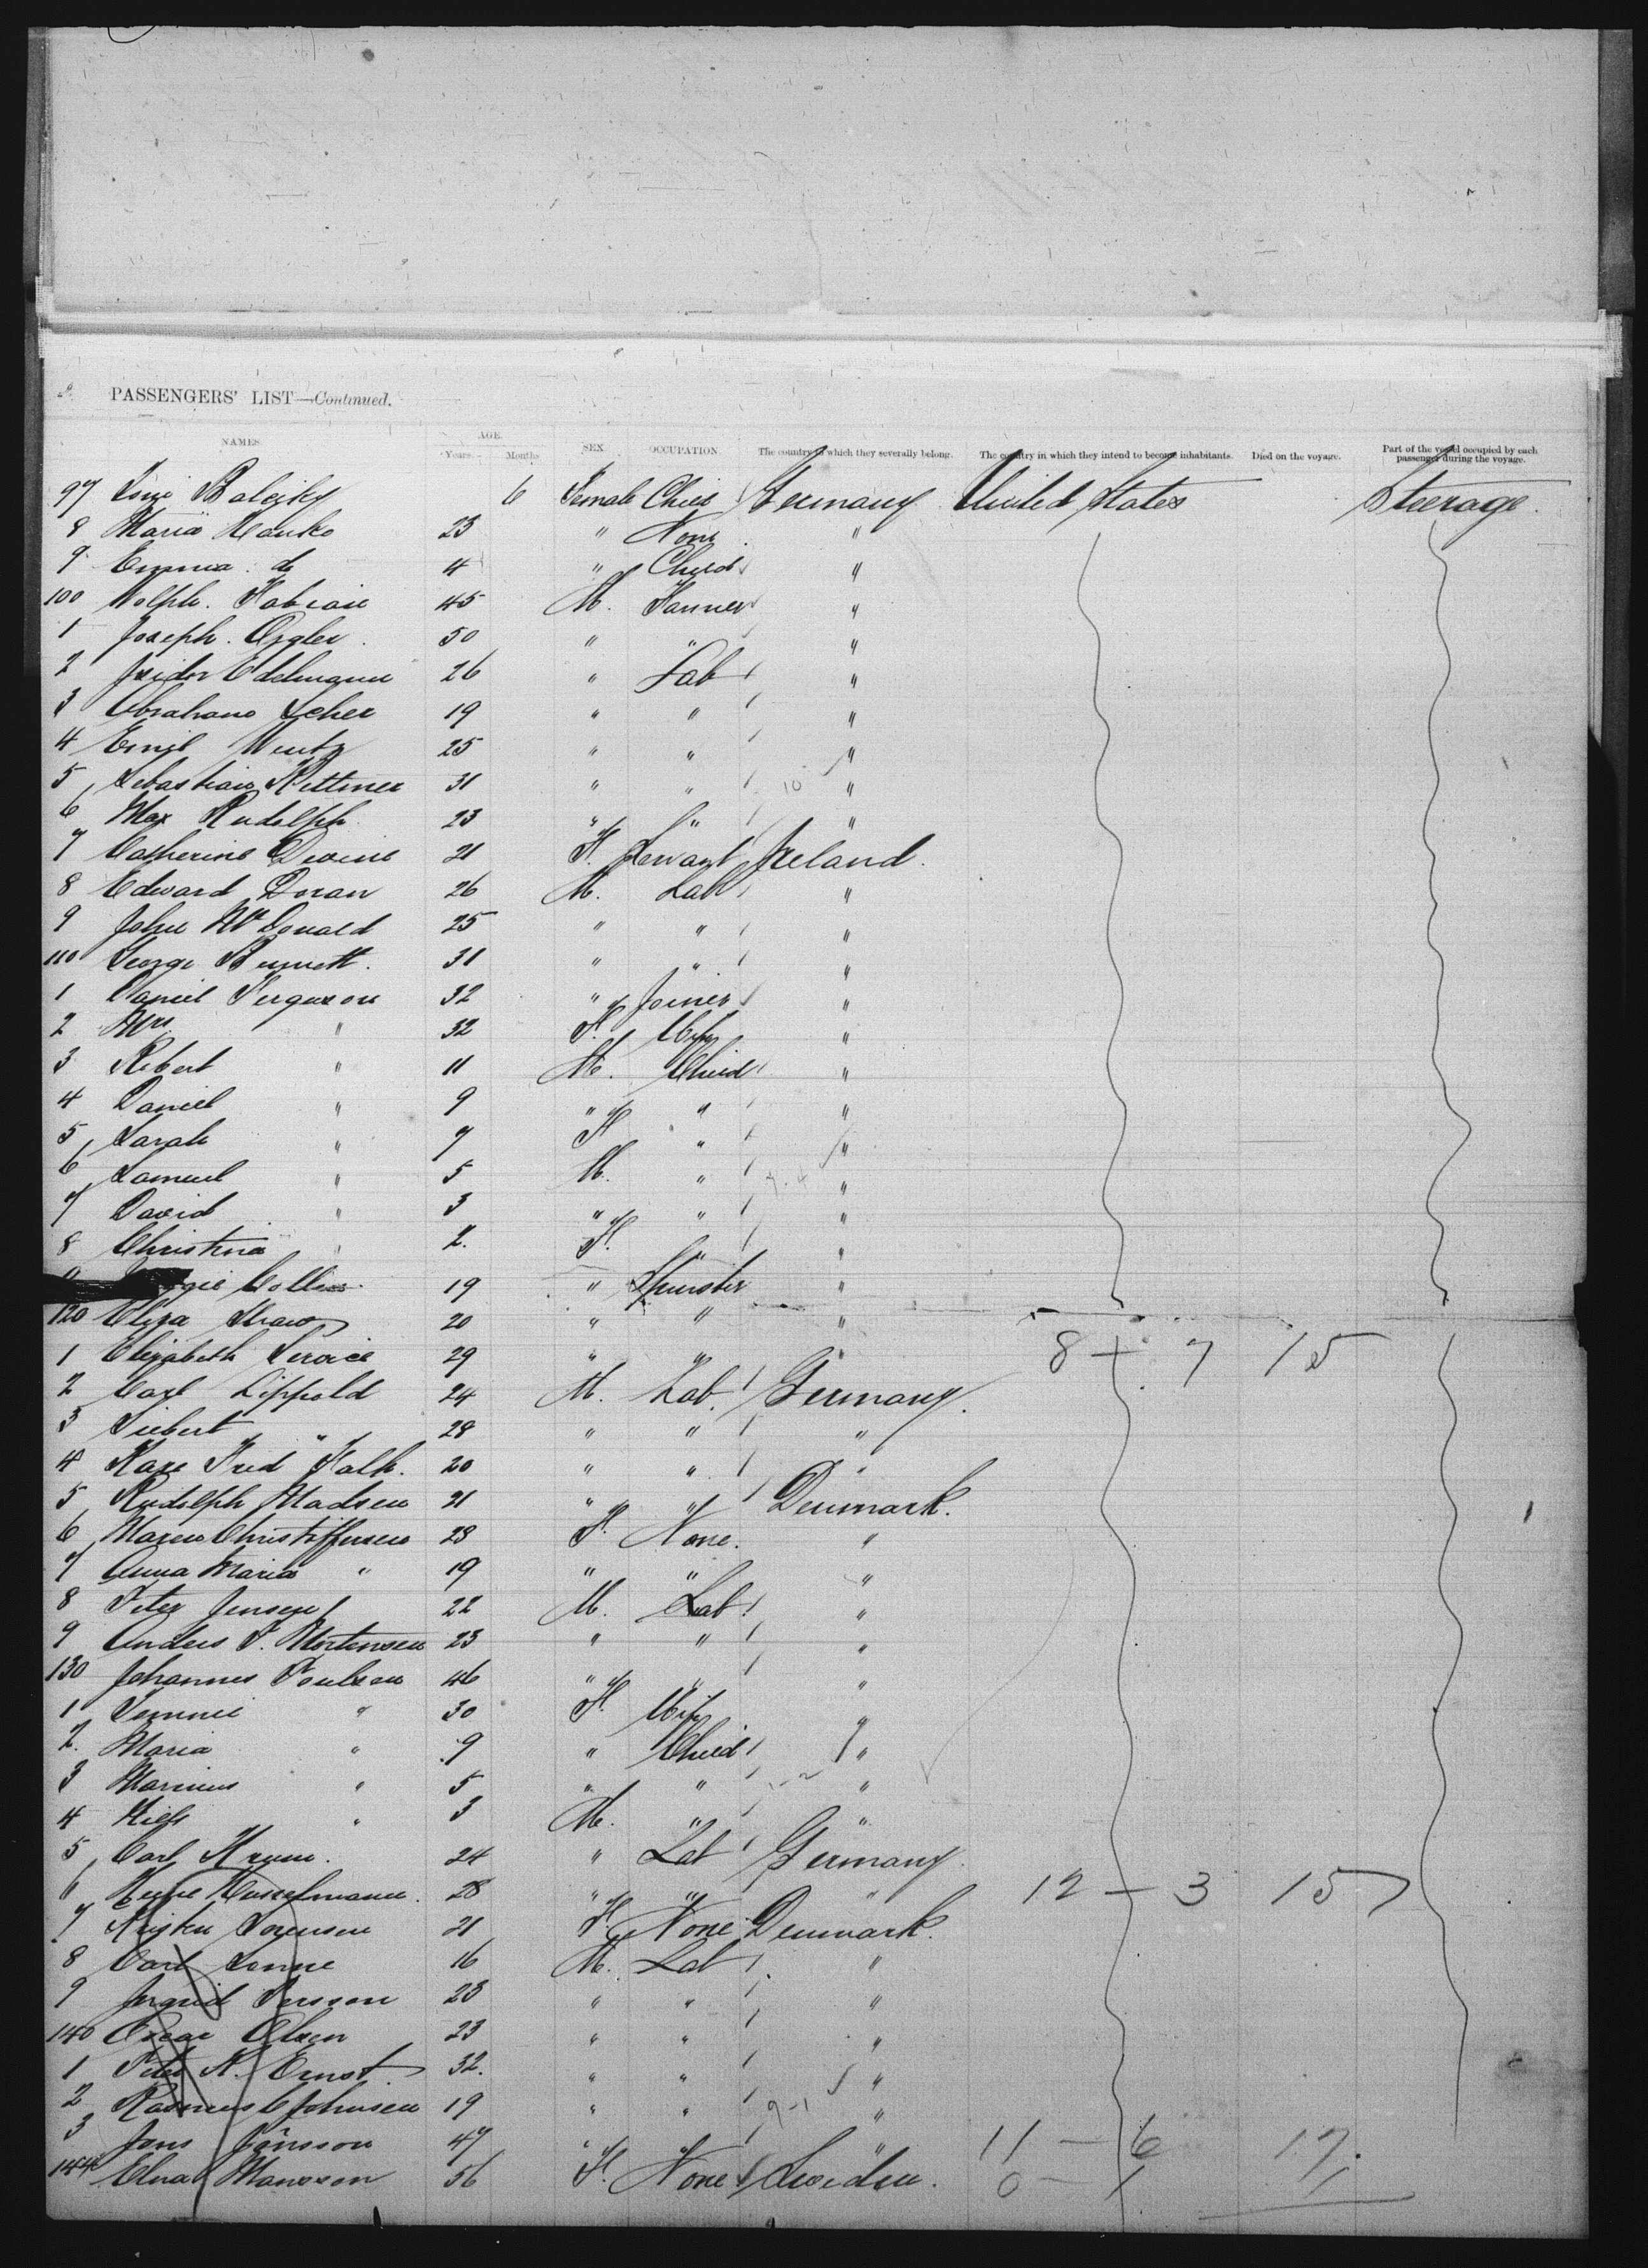 PASSENGERS' LIST—Continued.
NAMES. AGE. Years. Months. SEX. OCCUPATION. The country to which they severally belong. The country in which they intend to become inhabitants. Died on the voyage. Part of the vessel occupied by each passenger during the voyage.
97 6 Female Child Germany United States Steerage.
8 Maria Hanko 23 " None "
9 Emma do 4 " Child "
100 Fabian 45 M. "
1 Joseph. 50 " " "
2 Isidor Edelmann 26 " Lab "
3 Abraham Scher 19 " " "
4 Emil Wentz 25 " " "
5 Sebastian Rittmer 31 " " 10 "
6 Max Rudolph 23 " " "
7 Catherine Devine 21 F. Servant Ireland.
8 Edward Doran 26 M. Lab "
9 John McDonald 25 " " "
110 George Bennett. 31 " " "
1 Daniel Ferguson 32 " Joiner "
2 Mrs " 32 F. Wife "
3 Robert " 11 M. Child "
4 Daniel " 9 " " "
5 Sarah " 7 F " "
6 Samuel " 5 M. " "
7 David " 3 " " "
8 Christina " 2. F. " "
Collins 19 " Spinster "
120 Eliza Shaw 20 " " "
1 Elizabeth Service 29 " " " 8 + 7 15
2 Carl Lippold 24 M. Lab. Germany.
3 Siebert " 28 " " "
4 Karl Fred Falk. 20 " " "
5 Rudolph Madsen 21 " " Denmark.
6 Maren Christoffersen 28 F. None. "
7 Anna Maria " 19 " " "
8 Peter Jensen 22 M. Lab "
9 Anders P. Mortensen 23 " " "
130 Johannes Poulsen 46 " " "
1 " 30 F. Wife "
2. Maria " 9 " Child "
3 Marinus " 5 " " "
4 Niels " 3 M. " "
5 Carl Krum. 24 " Lab Germany
6 28 " " " 12 — 3 15
7 Kristen Sorensen 21 F. None Denmark.
8 Carl Lonne 16 M. Lab "
9 Ingrid Persson 23 " " "
140 Oscar Olsen 23 " " "
1 Peter N. Ernst 32. " " "
2 Rasmus C Johnsen 19 " " 9-1 "
3 Jons Jönsson 47 " " " 11 — 6 17.
144 Elna Mansson 56 F. None Sweden. 0 — 1 1